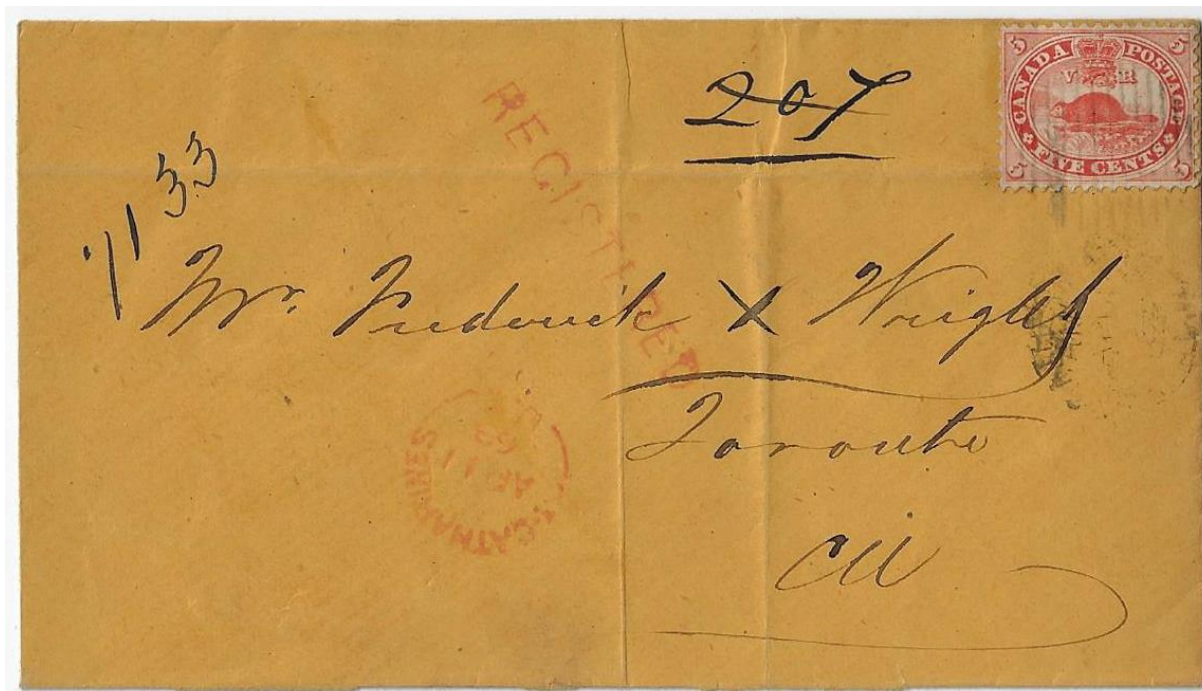 207
5 5
CANADA POSTAGE
V R
FIVE CENTS
5 5
REGISTERED
33
Mr. Frederick X Wright
Toronto
CW
ST. CATHARINES
AP 11